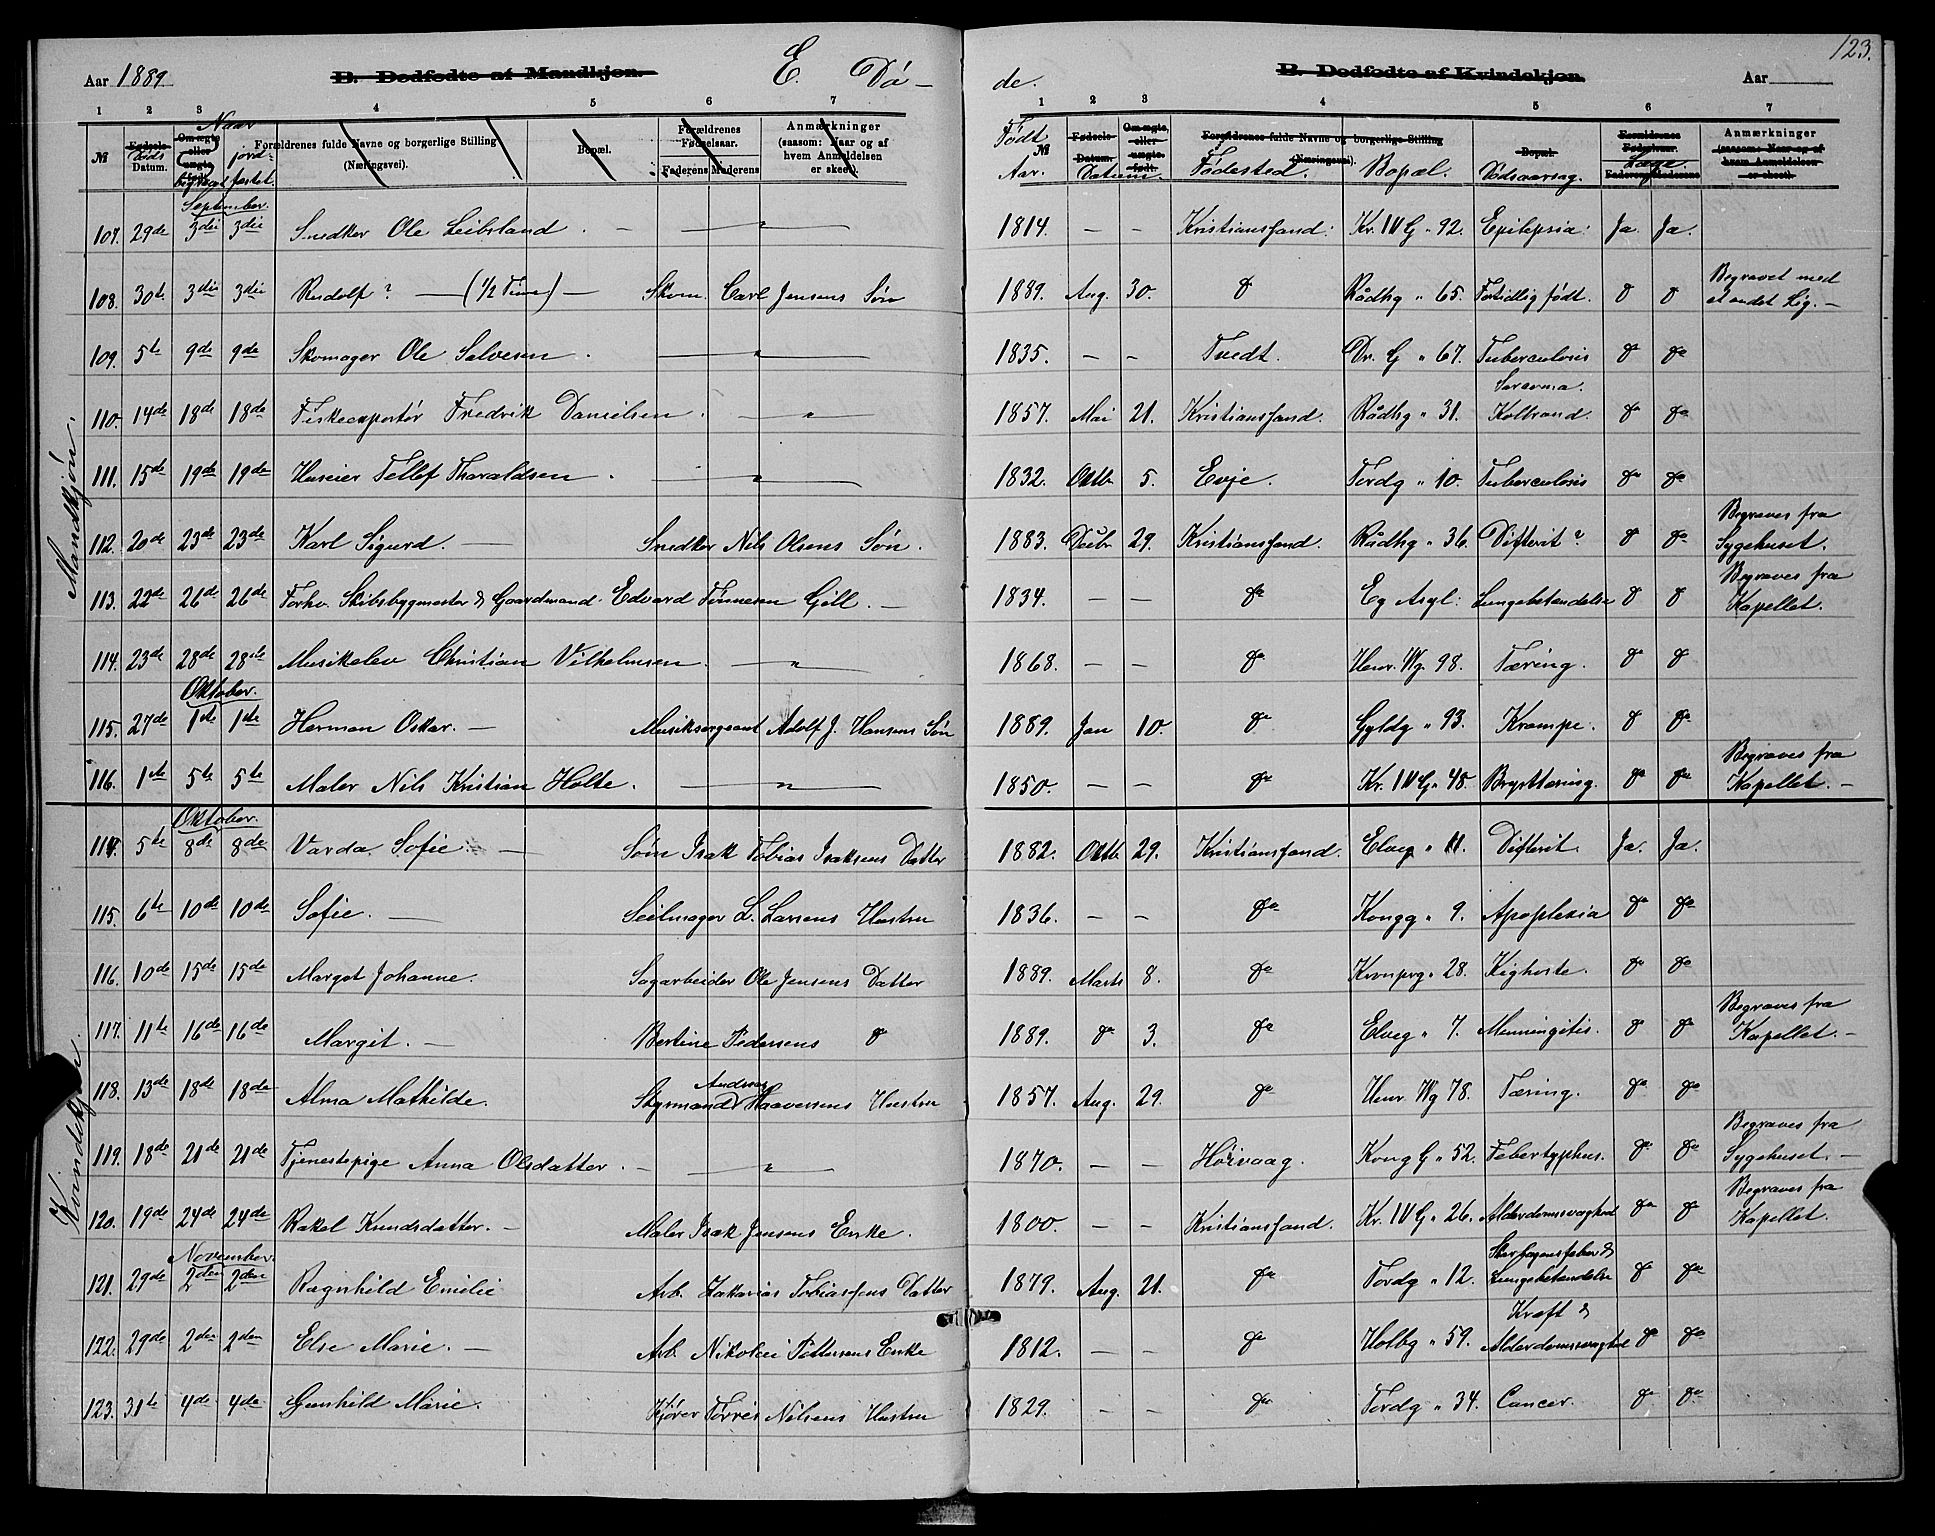 123.
Aar 1889 B. Dødfødte af Mandkjøn. E. Dø- de. B. Dødfødte af Kvindekjøn. Aar
1 2 3 4 5 6 7 1 2 3 4 5 6 7
№ Fødsels- Datum. Døds Omægte eller uægte født. Naar begravet jord- fæstet. Forældrenes fulde Navne og borgerlige Stilling (Næringsvei). Bopæl. Forældrenes Fødselsaar. Faderens Moderens Anmærkninger (saasom: Naar og af hvem Anmeldelsen er skeet).
№ Født Aar. Fødsels- Datum. Datum. Om ægte, eller uægte født. Forældrenes fulde Navne og borgerlige Stilling (Næringsvei). Fødested. Bopæl. Bopæl. Dødsaarsag. Forældrenes Fødselsaar. Læge. Faderens Moderens Anmærkninger (saasom: Naar og af hvem Anmeldelsen er skeet).
Mandkjøn.
September.
107. 29de 3die 3die Snedker Ole Leibsland . — — " — 1814. — — Kristianssand. Kr. IV G " 92. Epilepsia. Ja. Ja.
108. 30te 3die 3die Rudolf? — (1/2 Time) — Skom. Carl Jensens Søn 1889. Aug. 30. do Rådhg " 65. Fortidlig født. do do Begravet med et andet Lig. —
109. 5te 9de 9de Skomager Ole Salvesen . — " — 1835. — — Tvedt. Dr. G " 67. Tuberculosis do do
110. 14de 18de 18de Fiskeexportør Fredrik Danielsen . — " — 1857. Mai 21. Kristianssand. Rådhg " 31. Kolbrand. do do
111. 15de 19de 19de Huseier Tellef Tharaldsen . — " — 1832. Oktb 5. Evje. Tordg " 10. Tuberculosis do do
112. 20de 23de 23de Karl Sigurd. — Snedker Nils Olsens Søn. 1883. Decbr 29. Kristianssand. Rådhg " 36. Difterit? do do Begraves fra Sygehuset.
113. 22de 26de 26de Forhv. Skibsbygmester & Gaardmand Edvard Tønnesen Gill. — 1834. — — do Eg Asyl. Lungebetændelse do do Begraves fra Kapellet.
114. 23de 28de 28de Musikelev Christian Vilhelmsen . — " — 1868. — — do Henr. Wg. 98. Tæring. do do
Oktober.
115. 27de 1ste 1ste Herman Oskar. — Musiksergeant Adolf J. Hansens Søn 1889. Jan 10. do Gyldg " 93. Krampe. do do
116. 1ste 5te 5te Maler Nils Kristian Holte. — " — 1850. — — do Kr. IV G " 48. Brysttæring. do do Begraves fra Kapellet. —
Kvindekjøn.
Oktober.
114. 5te 8de 8de Varda Sofie. — Søm Isak Tobias Isaksens Datter 1882. Oktb 29. Kristianssand. Elveg " 11. Difterit. Ja. Ja.
115. 6te 10de 10de Sofie. — Seilmager L. Larsens Hustru 1836. — — do Kongg " 9. Apoplexia do do
116. 10de 15de 15de Margot Johanne. Sagarbeider Ole Jensens Datter 1889. Marts 8. do Kronprg " 28. Kighoste. do do
117. 11te 16de 16de Margit. — Bertine Pedersens do 1889. do 3. do Elveg " 7. Menningitis. do do Begraves fra Kapellet. —
118. 13de 18de 18de Alma Mathilde. Styrmand Andreas Haaversens Hustru 1857. Aug. 29. do Henr. Wg 78. Tæring. do do
119. 18de 21de 21de Tjenestepige Anna Olsdatter. — — " — 1870. — — Høivaag. Kong G " 52. Febertyphus. do do Begraves fra Sygehuset. —
120. 19de 24de 24de Rakel Knudsdatter. — Maler Isak Jensens Enke. 1800. — — Kristianssand. Kr. IV G " 26. Alderdomssvaghed do do Begraves fra Kapellet.
November.
121. 29de 2den 2den Ragnhild Emilie Arb. Zakarias Tobiassens Datter 1879. Aug. 21. do Tordg " 12. Skarlagensfeber & Lungebetændelse do do
122. 29de 2den 2den Else Marie. — Arb. Nikolai Pettersens Enke 1812. — — do Holbg " 59. Kræft & Alderdomssvaghed do do
123. 31te 4de 4de Gunhild Marie. Kjører Torres Nilsens Hustru 1829. — — do Tordg " 34. Cancer. do do